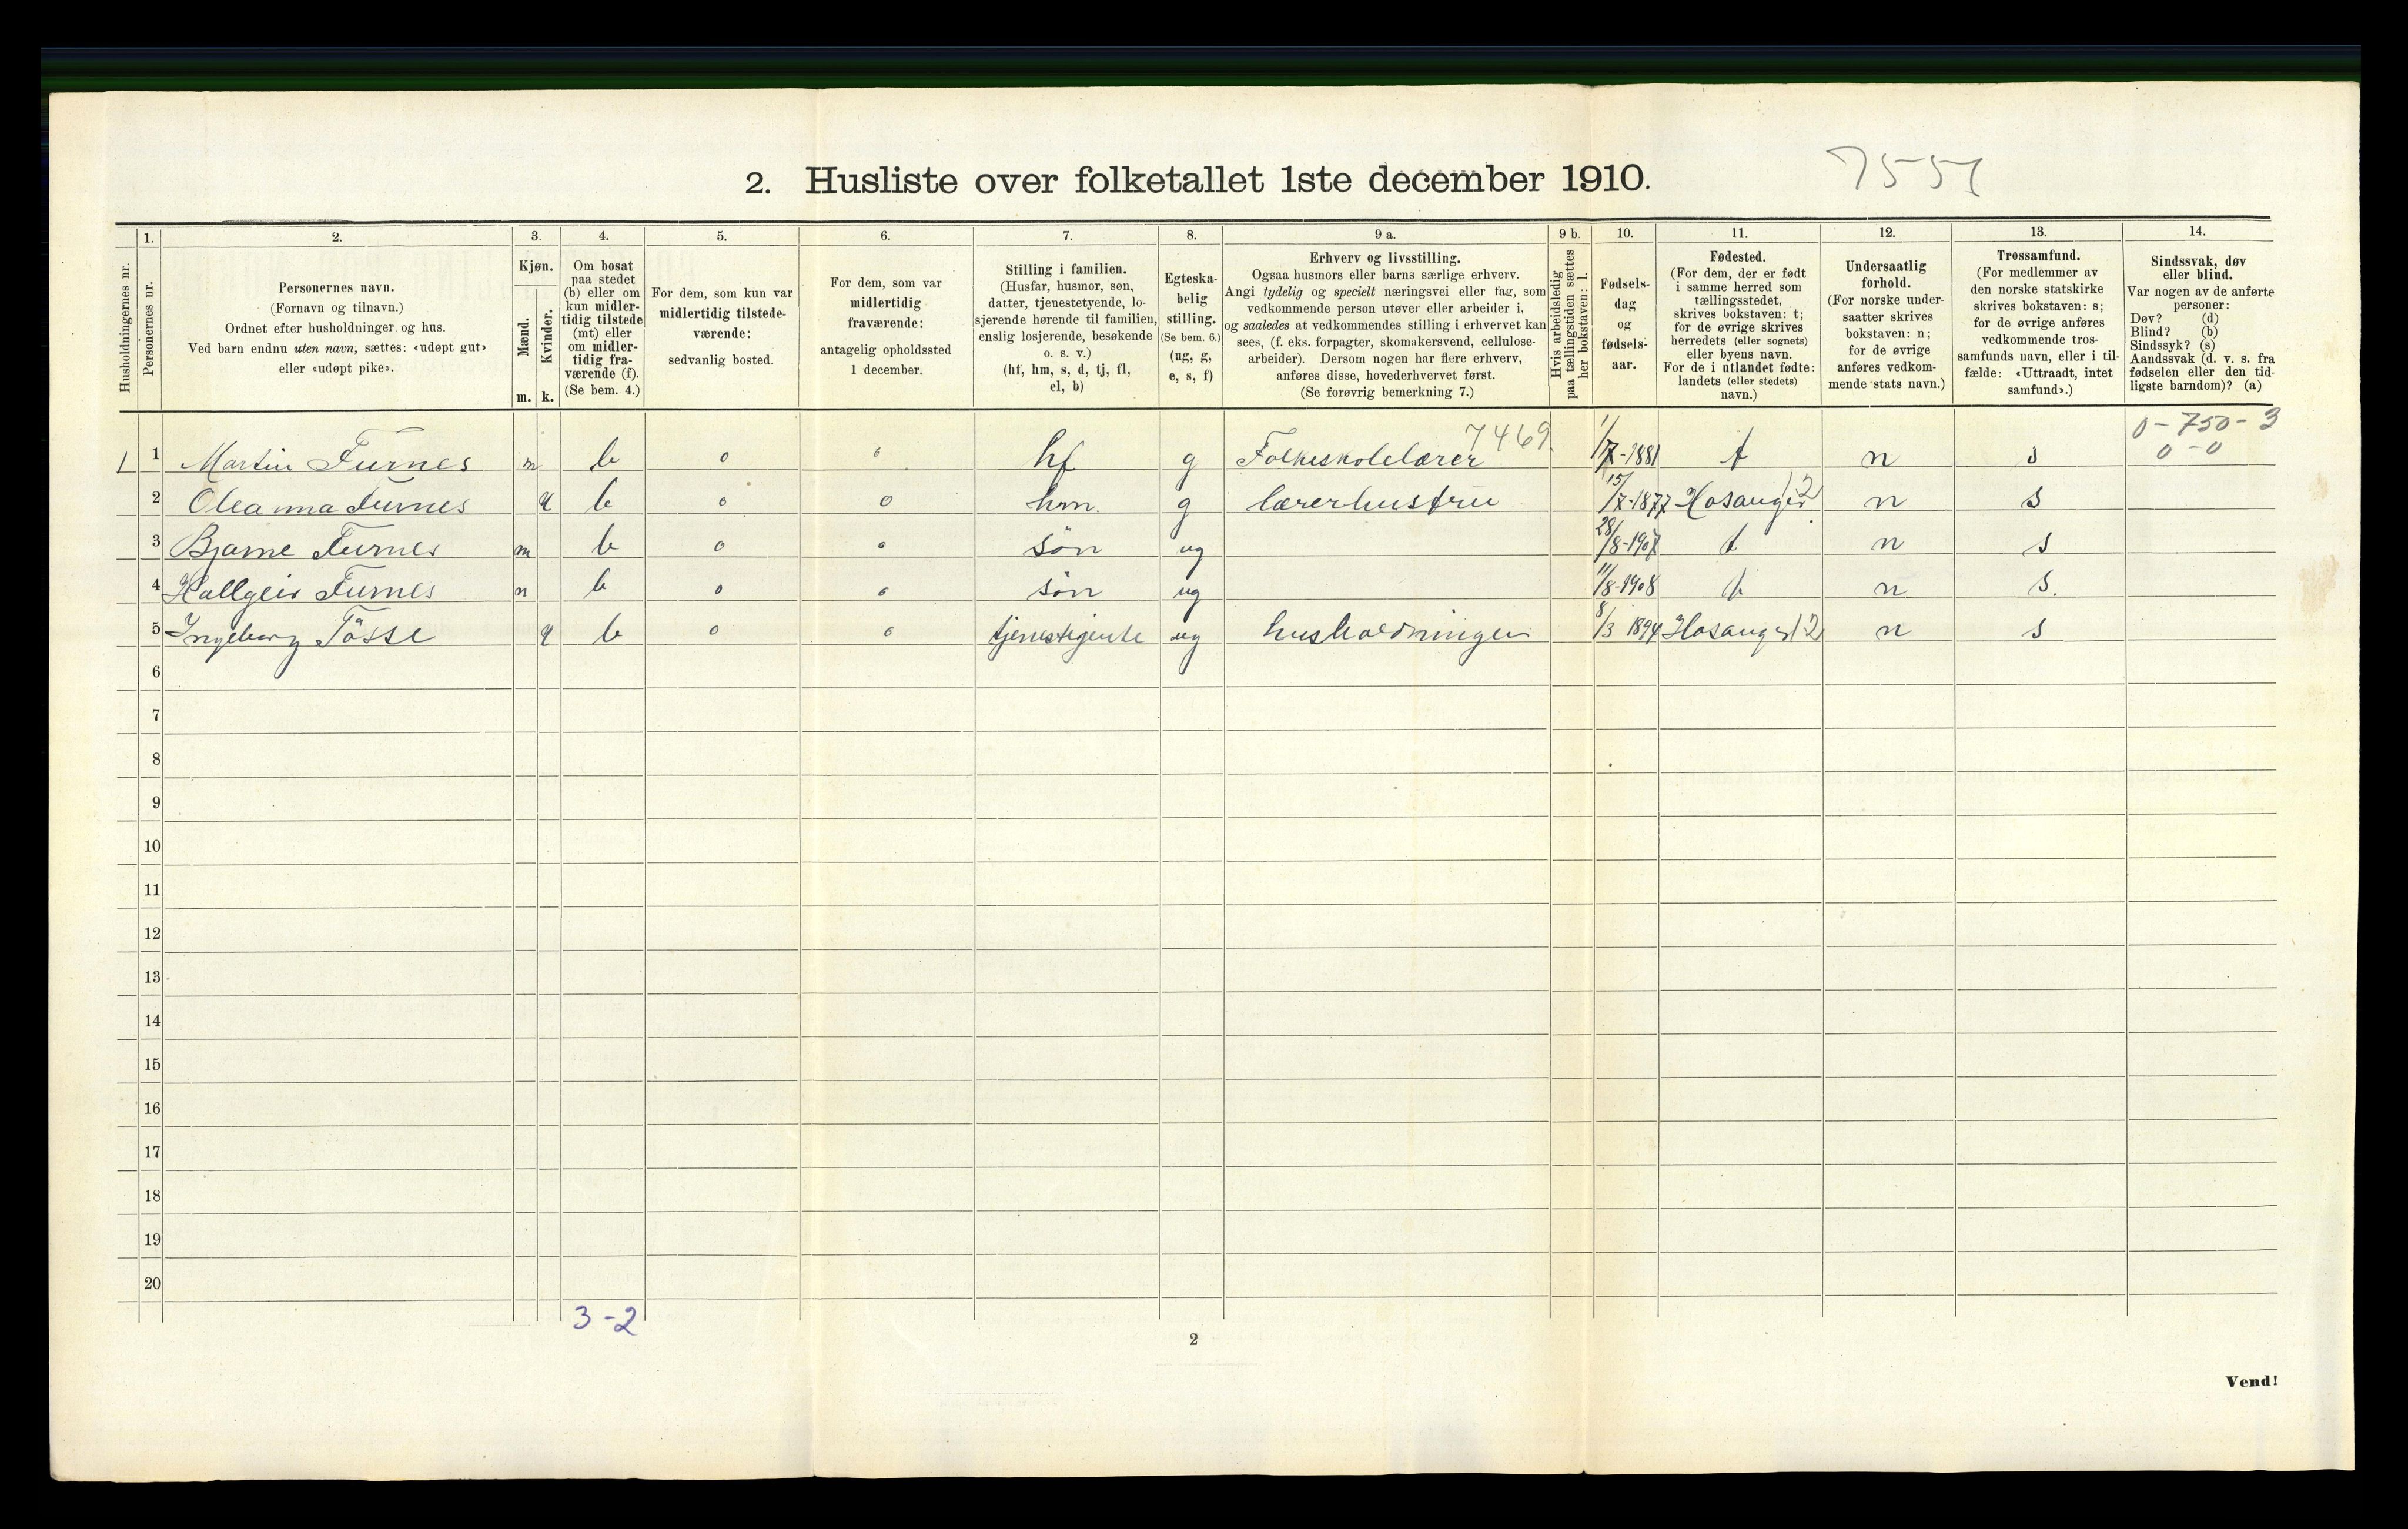 2. Husliste over folketallet 1ste december 1910.
1. 2. 3. 4. 5. 6. 7. 8. 9 a. 9 b. 10. 11. 12. 13. 14.
Husholdningernes nr.
Personernes nr.
Personernes navn.
(Fornavn og tilnavn.)
Ordnet efter husholdninger og hus.
Ved barn endnu uten navn, sættes: «udøpt gut»
eller «udøpt pike».
Kjøn.
Mænd.
Kvinder.
m. k.
Om bosat
paa stedet
(b) eller om
kun midler-
tidig tilstede
(mt) eller
om midler-
tidig fra-
værende (f).
(Se bem. 4.)
For dem, som kun var
midlertidig tilstede-
værende:
sedvanlig bosted.
For dem, som var
midlertidig
fraværende:
antagelig opholdssted
1 december.
Stilling i familien.
(Husfar, husmor, søn,
datter, tjenestetyende, lo-
sjerende hørende til familien,
enslig losjerende, besøkende
o. s. v.)
(hf, hm, s, d, tj, fl,
el, b)
Egteska-
belig
stilling.
(Se bem. 6.)
(ug, g,
e, s, f)
Erhverv og livsstilling.
Ogsaa husmors eller barns særlige erhverv.
Angi tydelig og specielt næringsvei eller fag, som
vedkommende person utøver eller arbeider i,
og saaledes at vedkommendes stilling i erhvervet kan
sees, (f. eks. forpagter, skomakersvend, cellulose-
arbeider). Dersom nogen har flere erhverv,
anføres disse, hovederhvervet først.
(Se forøvrig bemerkning 7.)
Hvis arbeidsledig
paa tællingstiden sættes
her bokstaven: l.
Fødsels-
dag
og
fødsels-
aar.
Fødested.
(For dem, der er født
i samme herred som
tællingsstedet,
skrives bokstaven: t;
for de øvrige skrives
herredets (eller sognets)
eller byens navn.
For de i utlandet fødte:
landets (eller stedets)
navn.)
Undersaatlig
forhold.
(For norske under-
saatter skrives
bokstaven: n;
for de øvrige
anføres vedkom-
mende stats navn.)
Trossamfund.
(For medlemmer av
den norske statskirke
skrives bokstaven: s;
for de øvrige anføres
vedkommende tros-
samfunds navn, eller i til-
fælde: «Uttraadt, intet
samfund».)
Sindssvak, døv
eller blind.
Var nogen av de anførte
personer:
Døv? (d)
Blind? (b)
Sindssyk? (s)
Aandssvak (d. v. s. fra
fødselen eller den tid-
ligste barndom)? (a)
7469 0-750-3
1 1 Martin Furnes m b o o hf g Folkeskolelærer 1/7-1881 t n s 0-0
2 Oleanna Furnes q b o o hm. g lærerhustru 15/7-1877 Hosanger 12 n s
3 Bjarne Furnes m b o o sön ug 28/8-1907 t n s
4 Hallgeir Furnes m b o o sön ug 11/8-1908 t n s.
5 Ingeborg Tösse q b o o tjenestegjente ug husholdningen 8/3 1894 Hosanger 12 n s
6
7
8
9
10
11
12
13
14
15
16
17
18
19
20
3-2
2
Vend!